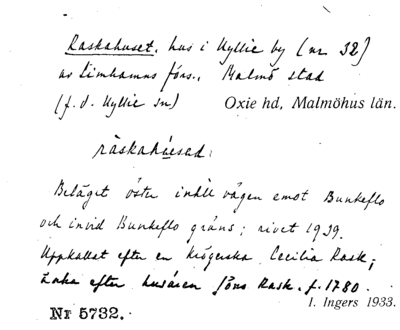 Raskahuset, hus i Hyllie by (nr 32)
av Limhamns förs., Malmö stad
(f.d. Hyllie sn) Oxie hd, Malmöhus län.
råskahúsad.
Beläget öster intill vägen emot Bunkeflo
och invid Bunkeflo gräns; rivet 1939.
Uppkallat efter en krögerska Cecilia Rask,
efter husåsen Jöns Rask. f. 1780.
I. Ingers 1933.
Nr 5732.